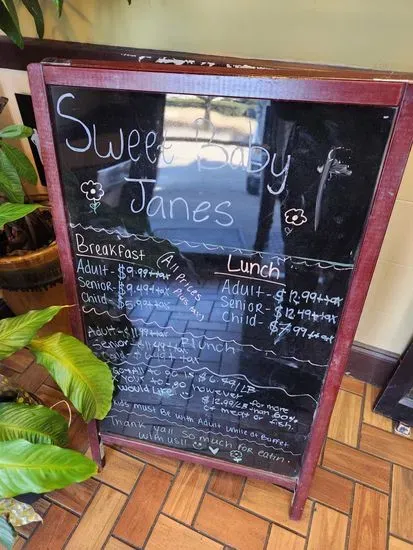 Sweet Baby
Janes
Breakfast
(All Prices
Plus tax)
Adult - $9.99+tax
Senior - $9.49+tax
Child - $5.99+tax
Lunch
Adult - $12.99+tax
Senior - $12.49+tax
Child - $7.99+tax
Adult - $11.99+tax
Senior - $11.49+tax
tax
to go is $6.99/LB
you're to-go
would Like however
$12.99/LB for more
than 80%
of meat or fish.
kids must Be with Adult while at Buffet
Thank ya'll so much for eatin'
with us!!